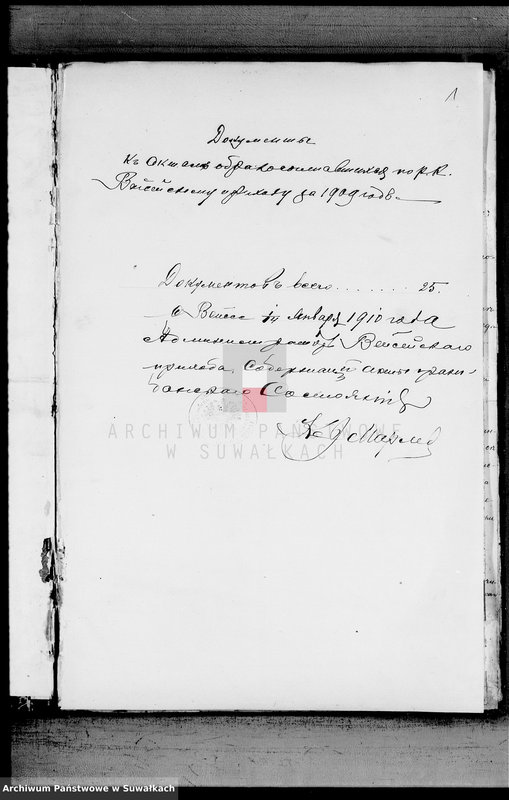 1
Документы
къ актамъ бракосочетавшихся по р.к.
Вейсейскому приходу за 1909 годъ.
Документовъ всего ........ 25.
с Вейсее 14 Января 1910 года
Администраторъ Вейсейского
прихода, Содержащій акты граж-
данскаго Состоянія
ARCHIWUM PAŃSTWOWE
W SUWAŁKACH
Archiwum Państwowe w Suwałkach